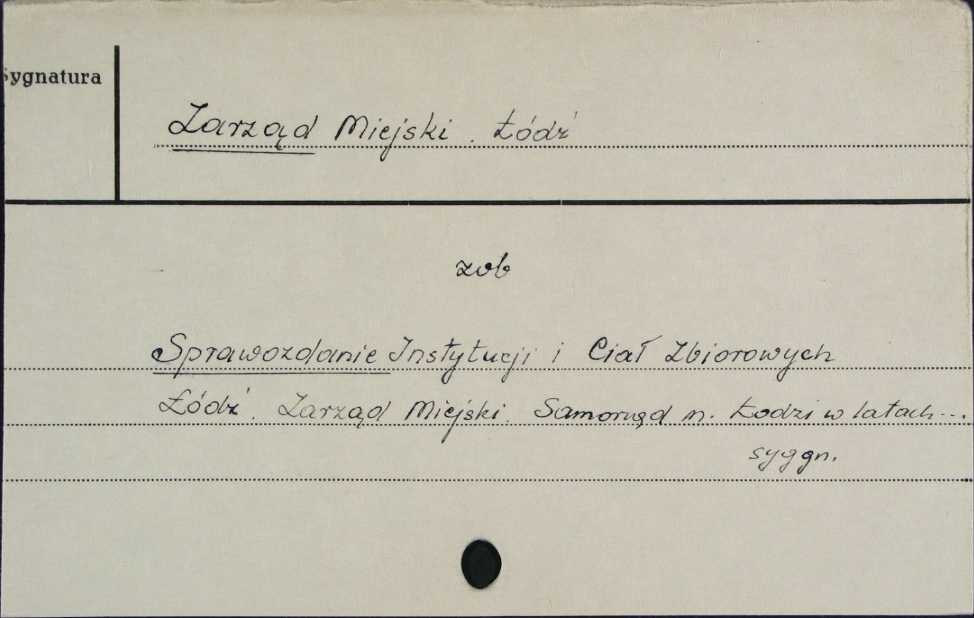 Sygnatura
Zarząd Miejski. Łódź
zob
Sprawozdanie Instytucji i Ciał Zbiorowych
Łódź. Zarząd Miejski. Samorząd m. Łodzi w latach...
syggn.